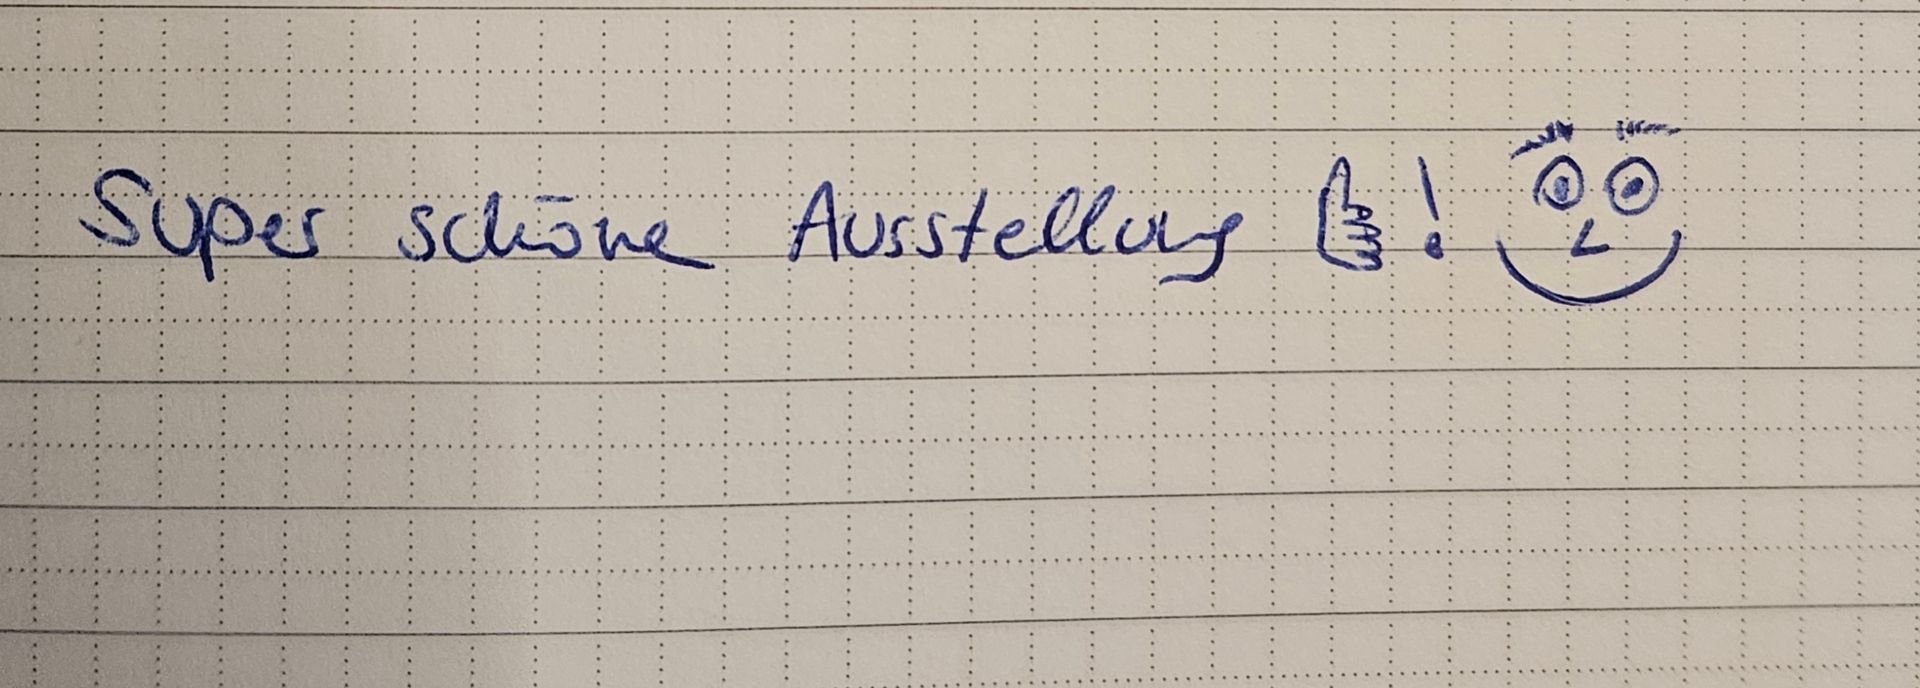 Super schöne Ausstellung 👍!